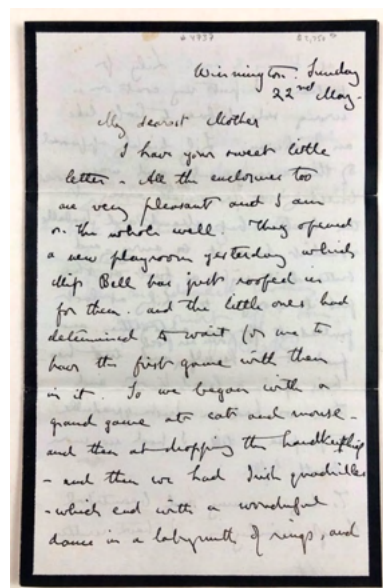 Winnington. Sunday
22nd May.
My dearest Mother
I have your sweet little
letter - All the enclosures too
are very pleasant and I am
on the whole well. They opened
a new playroom yesterday which
Miss Bell has just roofed in
for them. and the little ones had
determined to wait for me to
have the first game with them
in it. So we began with a
grand game at cats and mouse -
and then at dropping the handkerchief
- and then we had Irish quadrilles
- which end with a wonderful
dance in a labyrinth of rings, and